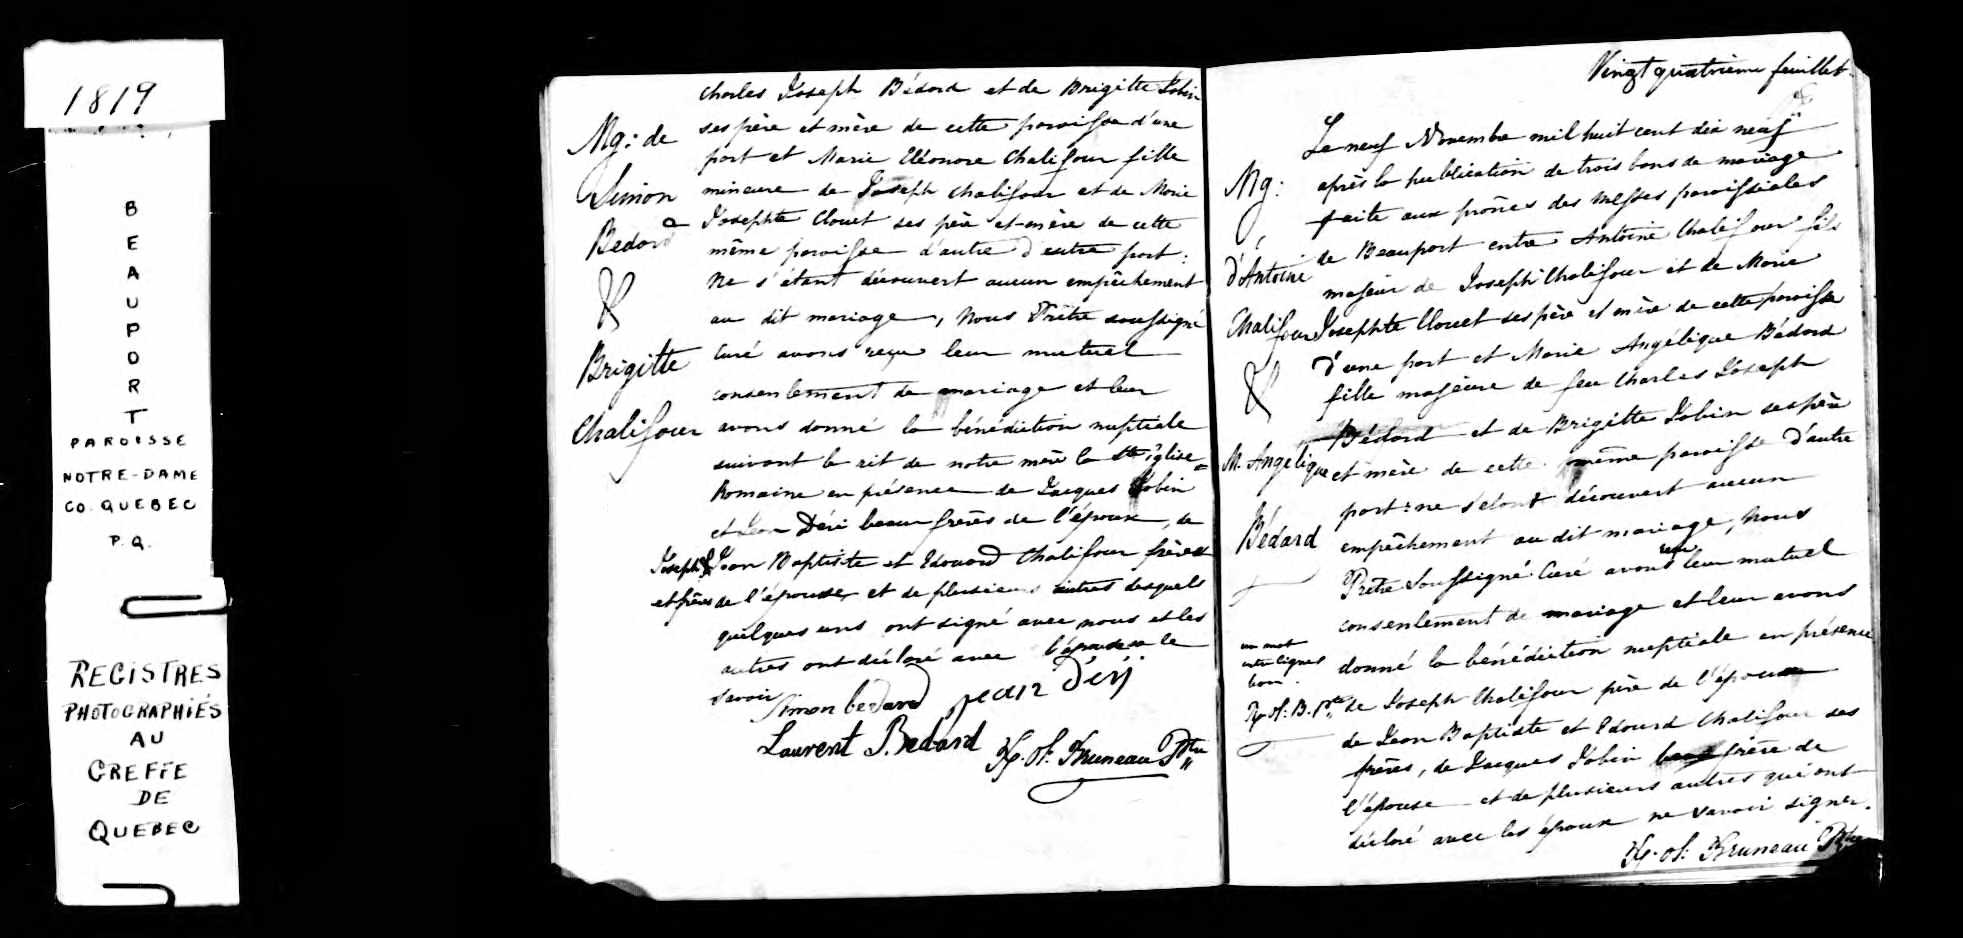 1819
BEAUPORT
PAROISSE
NOTRE-DAME
CO. QUEBEC
P.Q.
REGISTRES
PHOTOGRAPHIÉS
AU
GREFFE
DE
QUEBEC
Mg: de
Simon
Bedard
&
Brigitte
Chalifour
charles Joseph Bédard et de Brigitte Jobin
ses père et mère de cette paroisse d'une
part et Marie Eléonore Chalifour fille
mineure de Joseph chalifour et de Marie
Josephte Clouet ses père et mère de cette
même paroisse d'autre d'autre part:
ne s'étant découvert aucun empêchement
au dit mariage, nous Prêtre soussigné
Curé avons reçu leur mutuel
consentement de mariage et leur
avons donné la bénédiction nuptiale
suivant le rit de notre mère la Ste église
Romaine en présence de Jacques Jobin
et Jean Déri beaux frères de l'époux, de
Joseph & Jean Baptiste et Edouard Chalifour frères
et pères de l'épouse et de plusieurs autres desquels
quelques uns ont signé avec nous et les
autres ont déclaré avec l'épouse ne le
savoir
Simon bedard jean Dérÿ
Laurent P. Bedard
Bruneau Ptre
Vingt quatrième feuillet
Mg:
d'Antoine
Chalifour
&
M. Angélique
Bédard
Le neuf Novembre mil huit cent dix neuf
après la publication de trois bans de mariage
faite aux prônes des messes paroissiales
de Beauport entre Antoine Chalifour fils
majeur de Joseph Chalifour et de Marie
Josephte Clouet ses père et mère de cette paroisse
d'une part et Marie Angélique Bédard
fille majeure de feu Charles Joseph
Bédard et de Brigitte Jobin ses père
et mère de cette même paroisse d'autre
part: ne s'étant découvert aucun
empêchement au dit mariage, nous
Prêtre Soussigné Curé avons reçu leur mutuel
consentement de mariage et leur avons
donné la bénédiction nuptiale en présence
de Joseph Chalifour père de l'époux
de Jean Baptiste et Edouard Chalifour ses
frères, de Jacques Jobin beau frère de
l'épouse et de plusieurs autres qui ont
déclaré avec les époux ne savoir signer.
un mot
interlignes
bon.
Bruneau Ptre